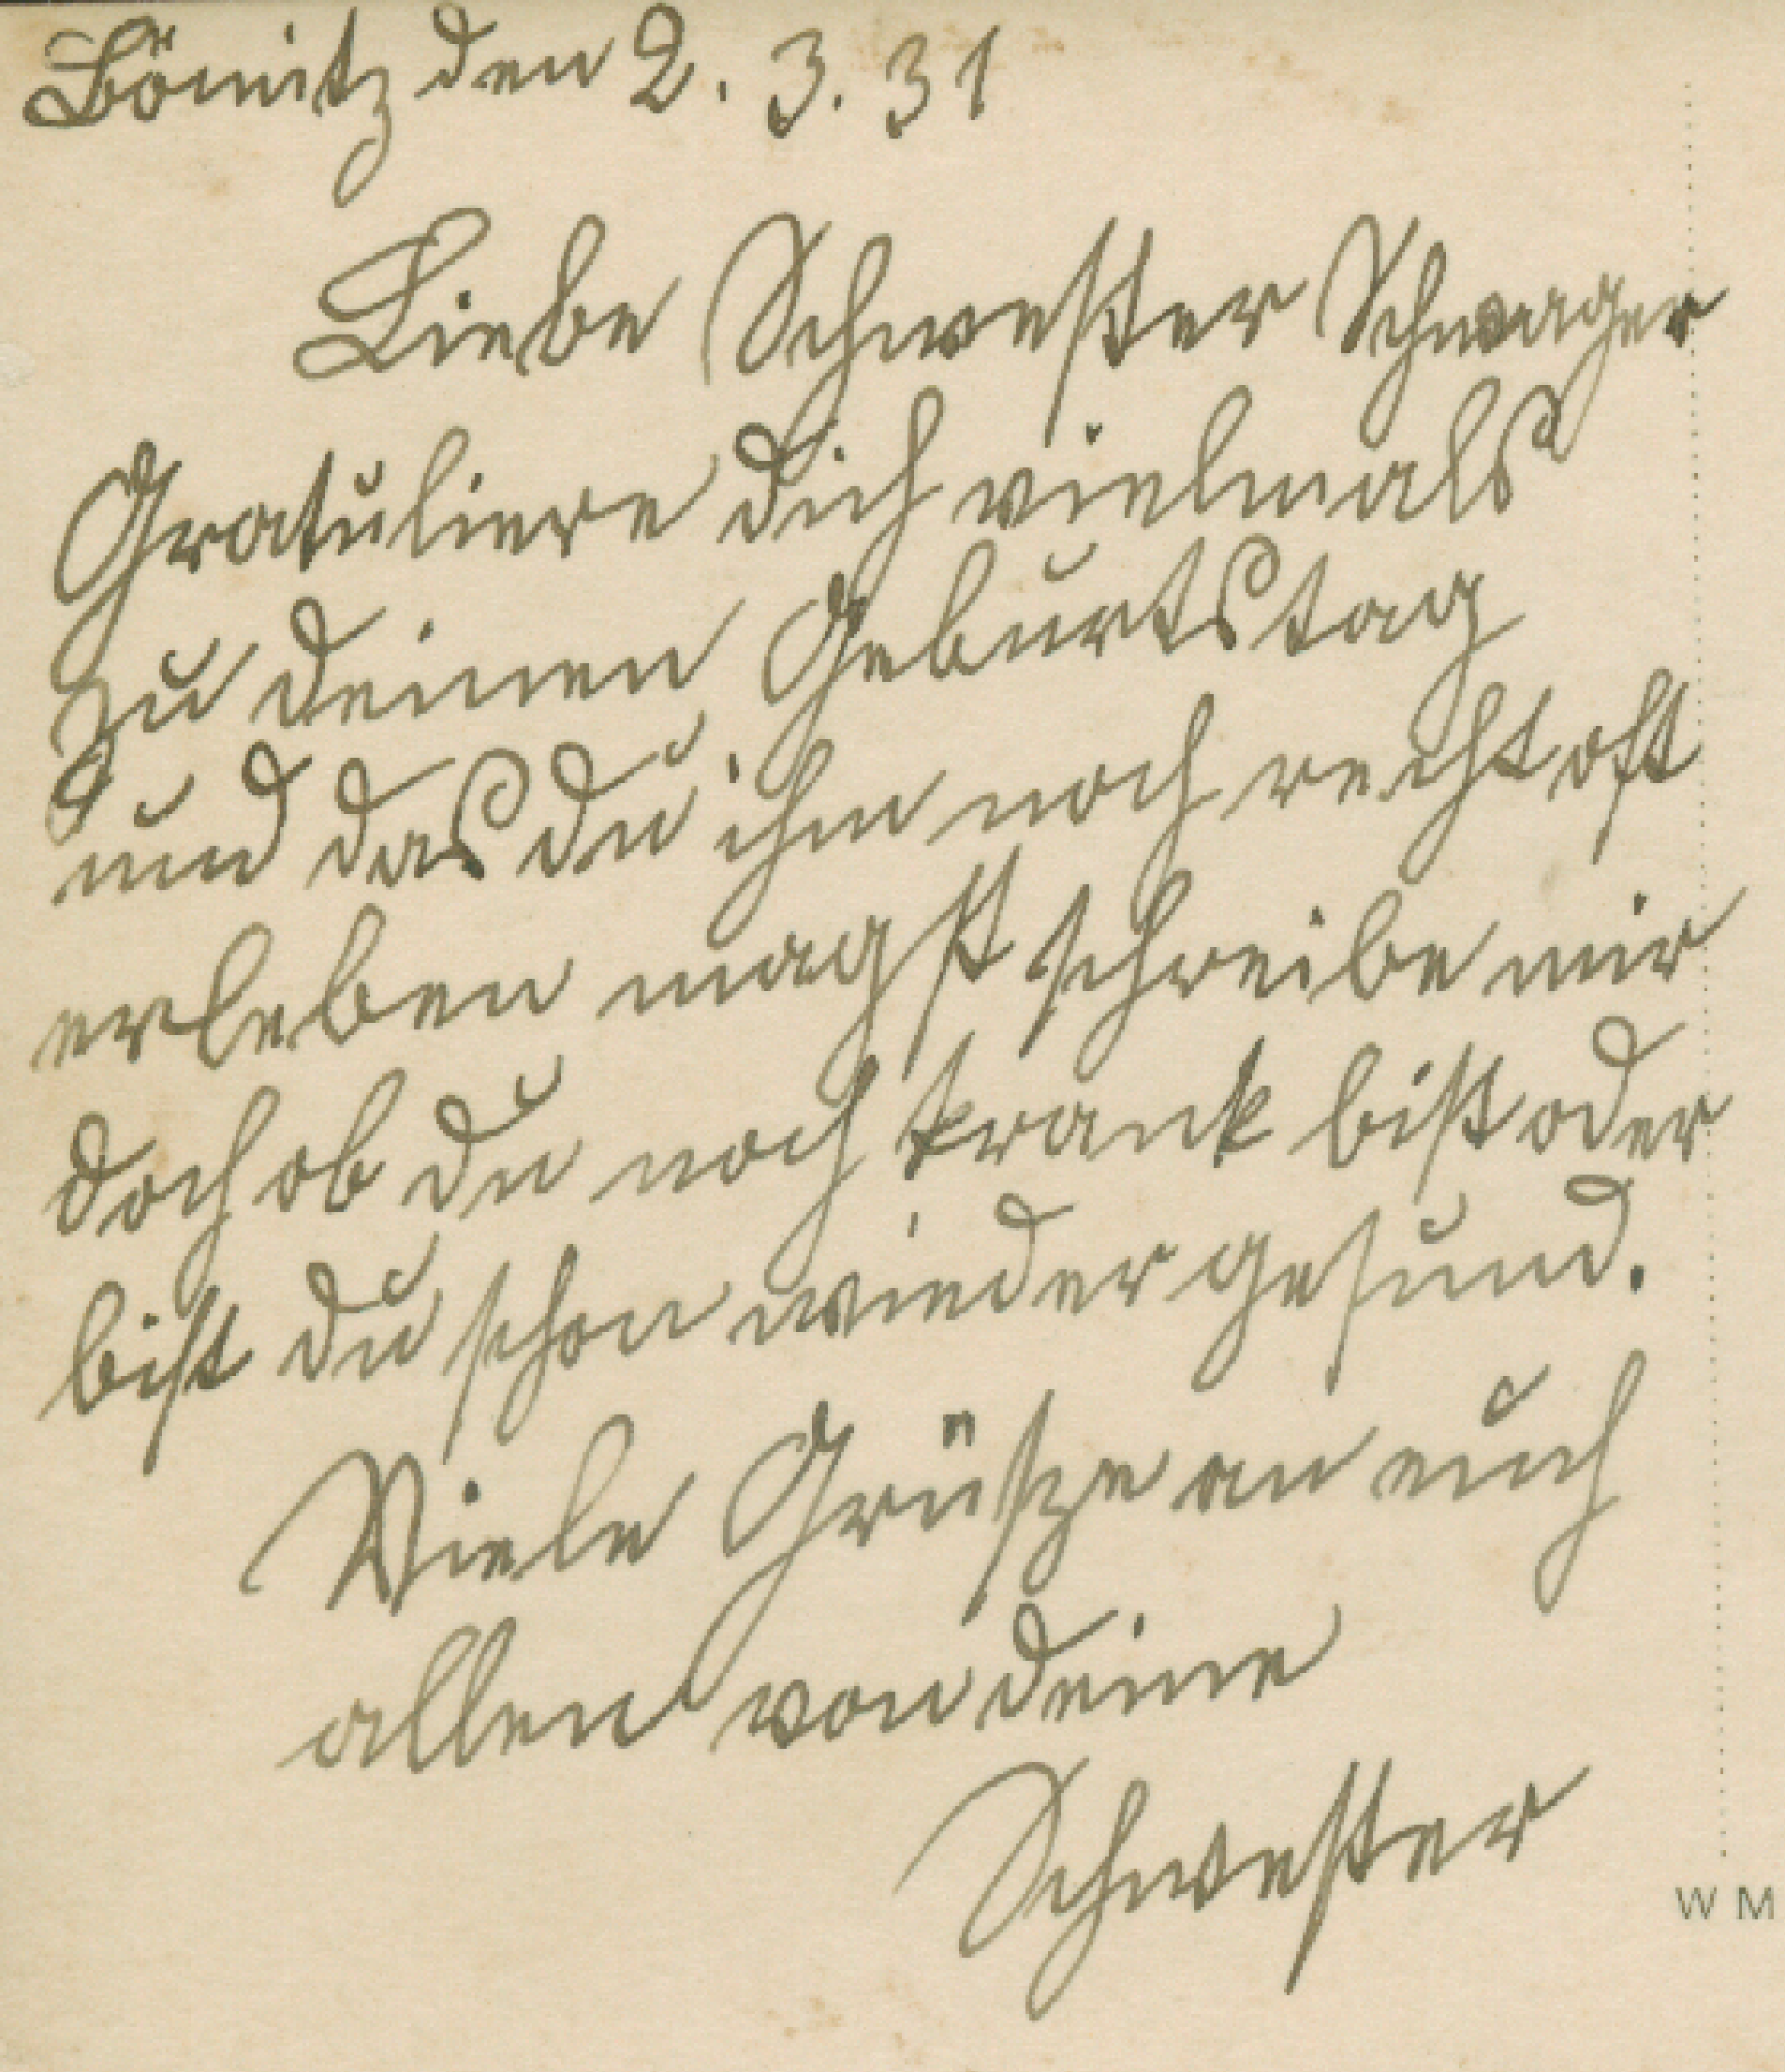 Bömitz den 2. 3. 31
Liebe Schwester Schwager
Gratuliere dich vielmals
zu deinen Geburtstag
und das du ihm noch recht oft
erleben magst schreibe mir
doch ob du noch krank bist oder
bist du schon wieder gesund.
Viele Grüße an euch
allen von deine
Schwester
W M